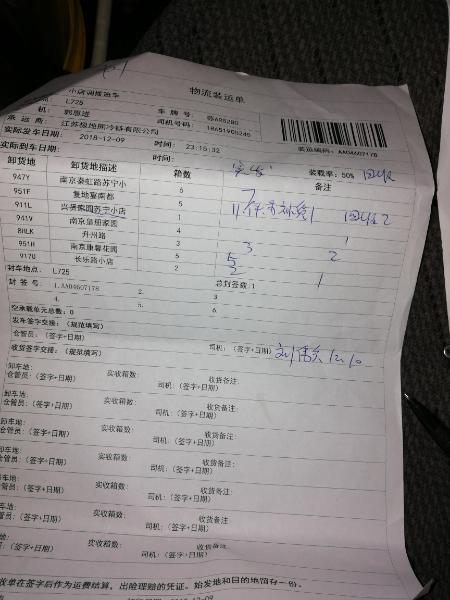 物流装运单
小店调拨运车
L725
机： 郭思进 车牌号：
承运商： 江苏极地熊冷链有限公司 司机号码： 18651905245
实际发车日期： 2018-12-09 时间： 23:15:32 装运编码：AA04607178
实际到车日期： 时间： 装载率：50% 回收
卸货地 卸货地描述 箱数 实发 备注
947Y 南京秦虹路苏宁小 6
951F 复地宴南都 5 7
911L 兴景熙园苏宁小店 11 回收2
941V 南京皇册家园 1
8HLK 升州路 4 1
951H 南京康馨花园 3 3 2
917U 长乐路小店 5
2 2 1
封车地点： L725 总封签数：1
封签号： 1.AA04607178 2. 3.
4. 5. 6.
空承载单元总数：0
发车签字交接：（规范填写）
仓管员：（签字+日期） 司机：（签字+日期） 12.10
收货签字交接：（规范填写）
卸车地： 实收箱数： 收货备注：
仓管员：（签字+日期） 司机：（签字+日期）
卸车地： 实收箱数： 收货备注：
仓管员：（签字+日期） 司机：（签字+日期）
卸车地： 实收箱数： 收货备注：
仓管员：（签字+日期） 司机：（签字+日期）
卸车地： 实收箱数： 收货备注：
仓管员：（签字+日期） 司机：（签字+日期）
卸车地： 实收箱数： 收货备注：
仓管员：（签字+日期） 司机：（签字+日期）
卸车地： 实收箱数： 收货备注：
管员：（签字+日期） 司机：（签字+日期）
收单在签字后作为运费结算、出险理赔的凭证。始发地和目的地留存一份。
2018-12-09